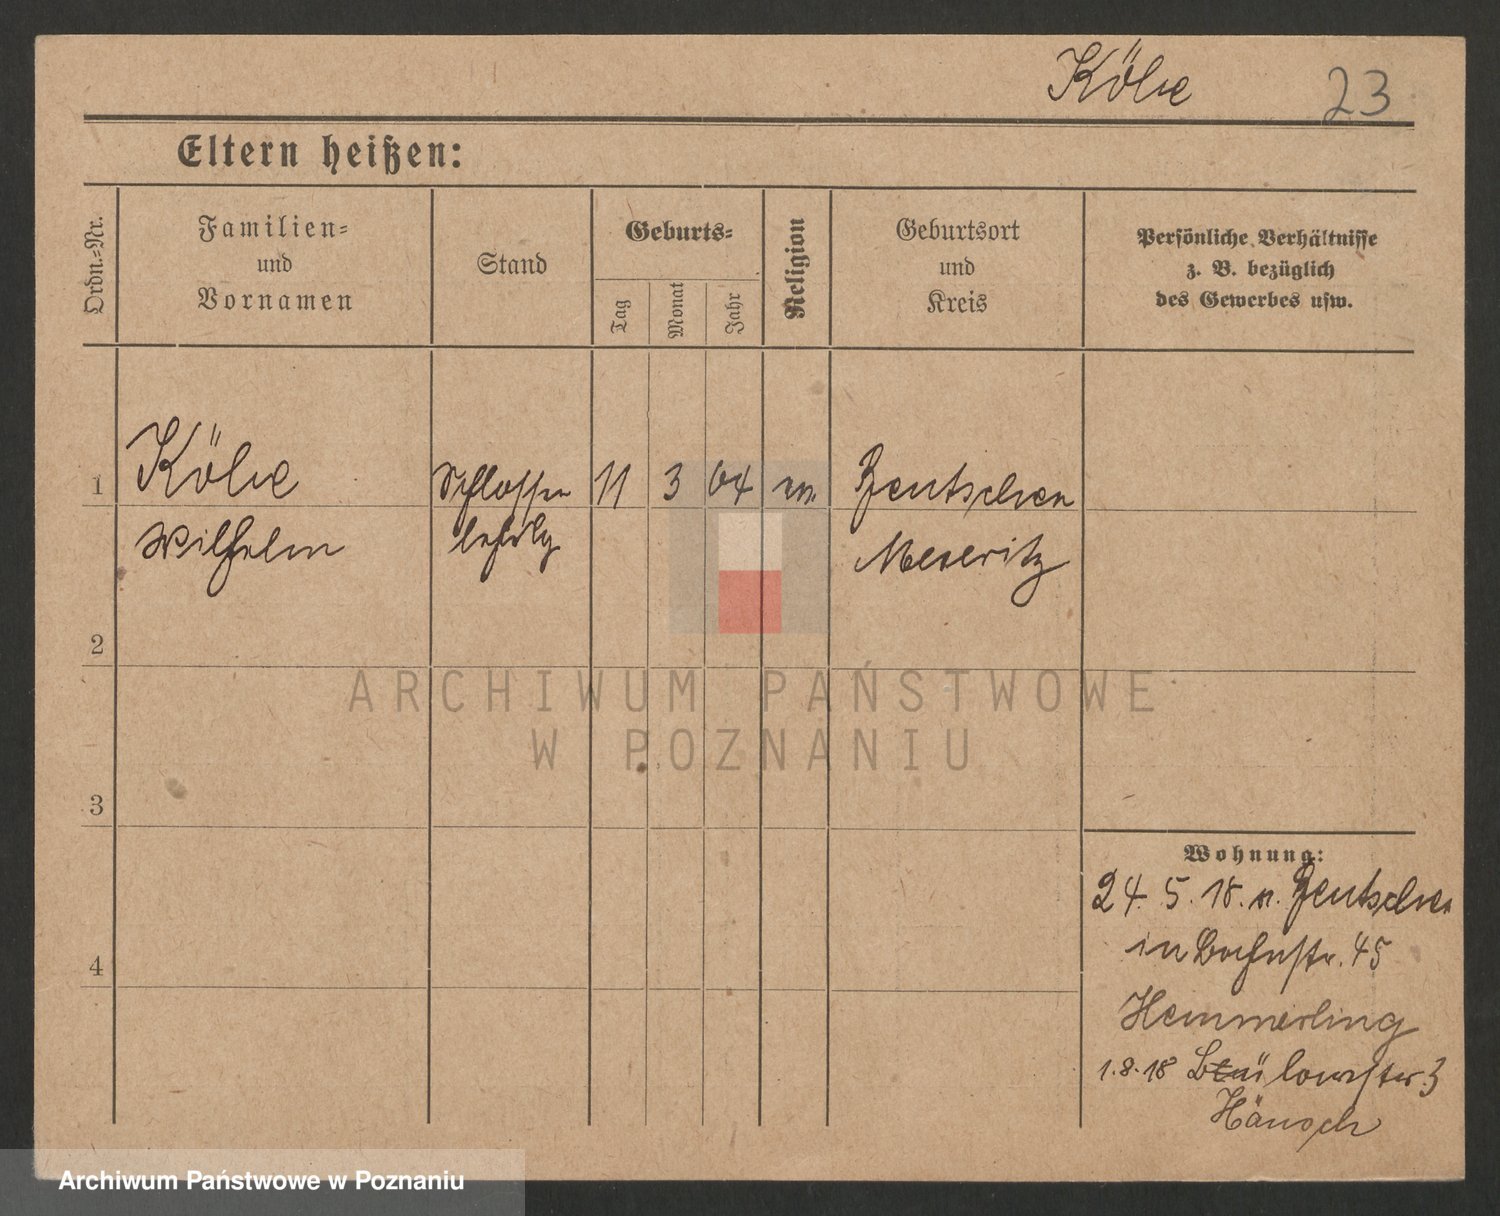 Kölie 23
Eltern heißen:
Ordn.-Nr.
Familien-
und
Vornamen
Stand
Geburts-
Tag
Monat
Jahr
Religion
Geburtsort
und
Kreis
Persönliche Verhältnisse
z. B. bezüglich
des Gewerbes usw.
1 Kölie Schlosser 11 3 04 Bentschen
Wilhelm Meseritz
2
3
4
ARCHIWUM PAŃSTWOWE
W POZNANIU
Wohnung:
24. 5. 18. n. Bentschen
in Bahnstr. 45
Hemmerling
1.8.18 Bülowstr. 3
Hänsch
Archiwum Państwowe w Poznaniu